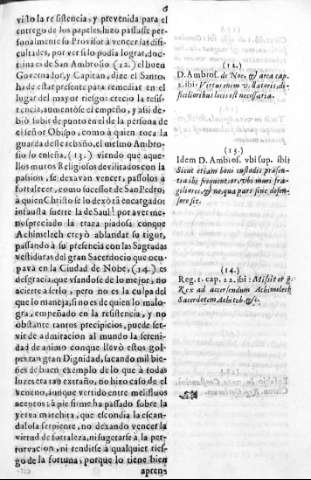 6
vistó la resistencia, y prevenida para el
entrego de los papeles, huvo passasse per-
sonalmente su Provisor à vencer las difi-
cultades, por ver si lo podia lograr, doc-
trina es de San Ambrosio (12.) el buen
Governador, y Capitan, dize el Santo,
ha de estar presente para remediar en el
lugar del mayor riesgo: creciò la resis-
tencia, aumentóse el empeño, y assi de-
biò subir de punto en el de la persona de
el señor Obispo, como à quien toca la
guarda de el rebaño, el mesmo Ambro-
sio lo enseña, (13.) viendo que aque-
llos muros Religiosos debilitados con la
passion, se dexavan vencer, passólos à
fortalecer, como sucessor de San Pedro,
à quien Christo se lo dexó tã encargado:
infausta suerte la de Saul! por aver me-
nospreciado la traza piadosa conque
Achimelech creyò ablandar su rigor,
passando à su presencia con las Sagradas
vestiduras del gran Sacerdocio que ocu-
pava en la Ciudad de Nobe, (14.) es
desgracia, que usandose de lo mejor, no
acierte à serlo, pero no es la culpa del
que lo maneja, si no es de quien lo malo-
gra, empeñado en la resistencia, y no
obstante tantos precipicios, puede ser-
vir de admiracion al mundo la sereni-
dad de animo conque llevò estos gol-
pes tan gran Dignidad, sacando mil bie-
nes de buen exemplo de lo que à todas
luzes era tan extraño, no hizo caso de el
veneno, aunque vertido entre melifluos
acentos: à pie firme ha passado sobre la
yerva marchita, que escondia la escan-
dalosa serpiente, no dexando vencer la
virtud de fortaleza, ni sugetarse à la per-
turvacion, ni rendirse à qualquier ries-
go de la fortuna; porque lo tiene bien
apren-
(12.)
D. Ambros. de Noe, & arca cap.
2. ibi: Virtus enim
(13.)
Idem D. Ambros. ubi sup. ibi:
(14.)
Reg. 1. cap. 22. ibi: Missit ergo
Rex ad accersendum Achimelech
Sacerdotem &c.